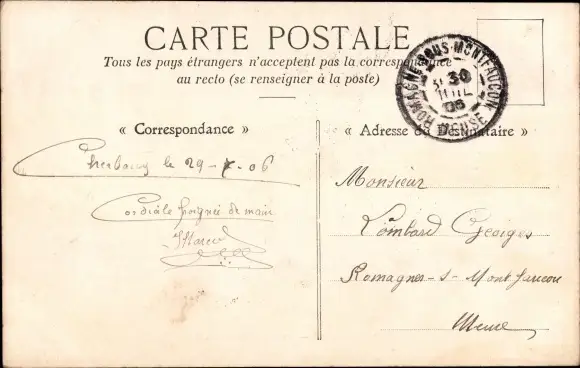 CARTE POSTALE
Tous les pays étrangers n'acceptent pas la correspondance
au recto (se renseigner à la poste)
ROMAGNE-SOUS-MONTFAUCON
30
JUIL
06
MEUSE
« Correspondance »
Cherbourg le 29-7-06
Cordiale poignée de main
« Adresse du Destinataire »
Monsieur
Lombard Georges
Romagnes-s-Montfaucon
Meuse